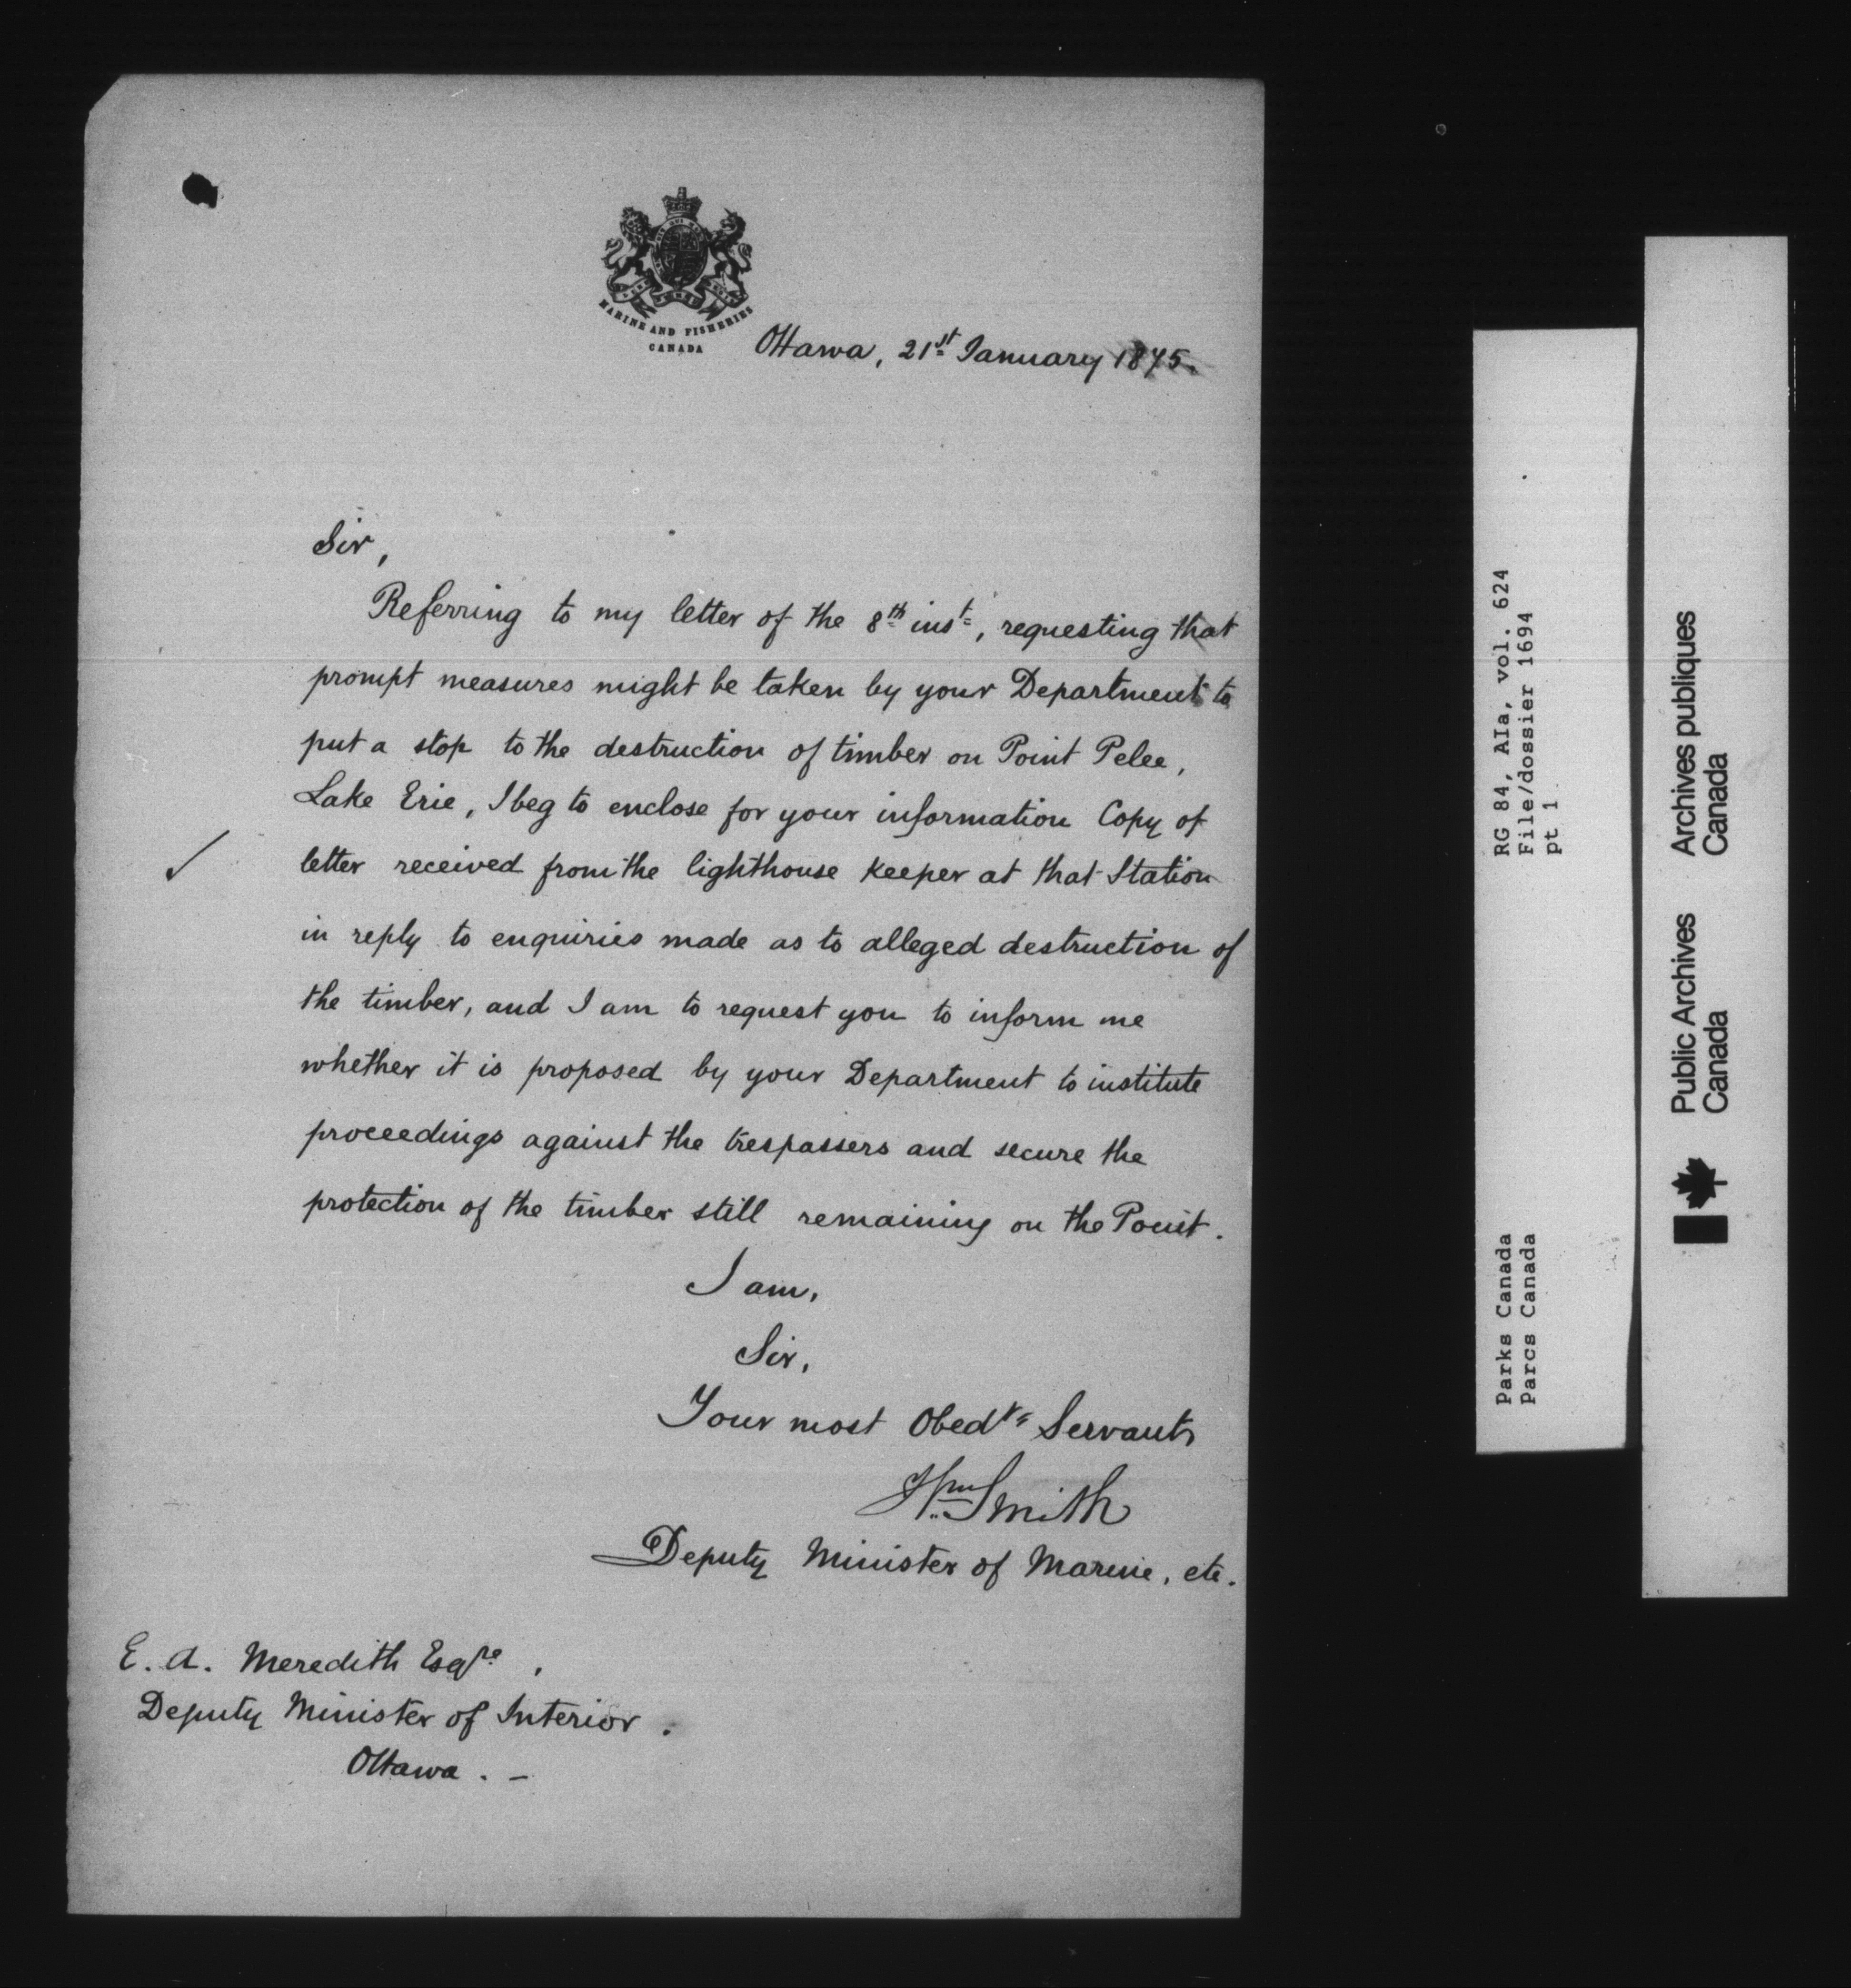 MARINE AND FISHERIES
CANADA
Ottawa, 21st January 1875.
Sir,
Referring to my letter of the 8th inst, requesting that
prompt measures might be taken by your Department to
put a stop to the destruction of timber on Point Pelee,
Lake Erie, I beg to enclose for your information Copy of
letter received from the lighthouse Keeper at that Station
in reply to enquiries made as to alleged destruction of
the timber, and I am to request you to inform me
whether it is proposed by your Department to institute
proceedings against the trespassers and secure the
protection of the timber still remaining on the Point.
I am,
Sir,
Your most Obedt Servant
Wm Smith
Deputy Minister of Marine, etc.
E. A. Meredith Esqre,
Deputy Minister of Interior.
Ottawa. -
RG 84, AIa, vol. 624
File/dossier 1694
pt 1
Parks Canada
Parcs Canada
Public Archives
Canada
Archives publiques
Canada